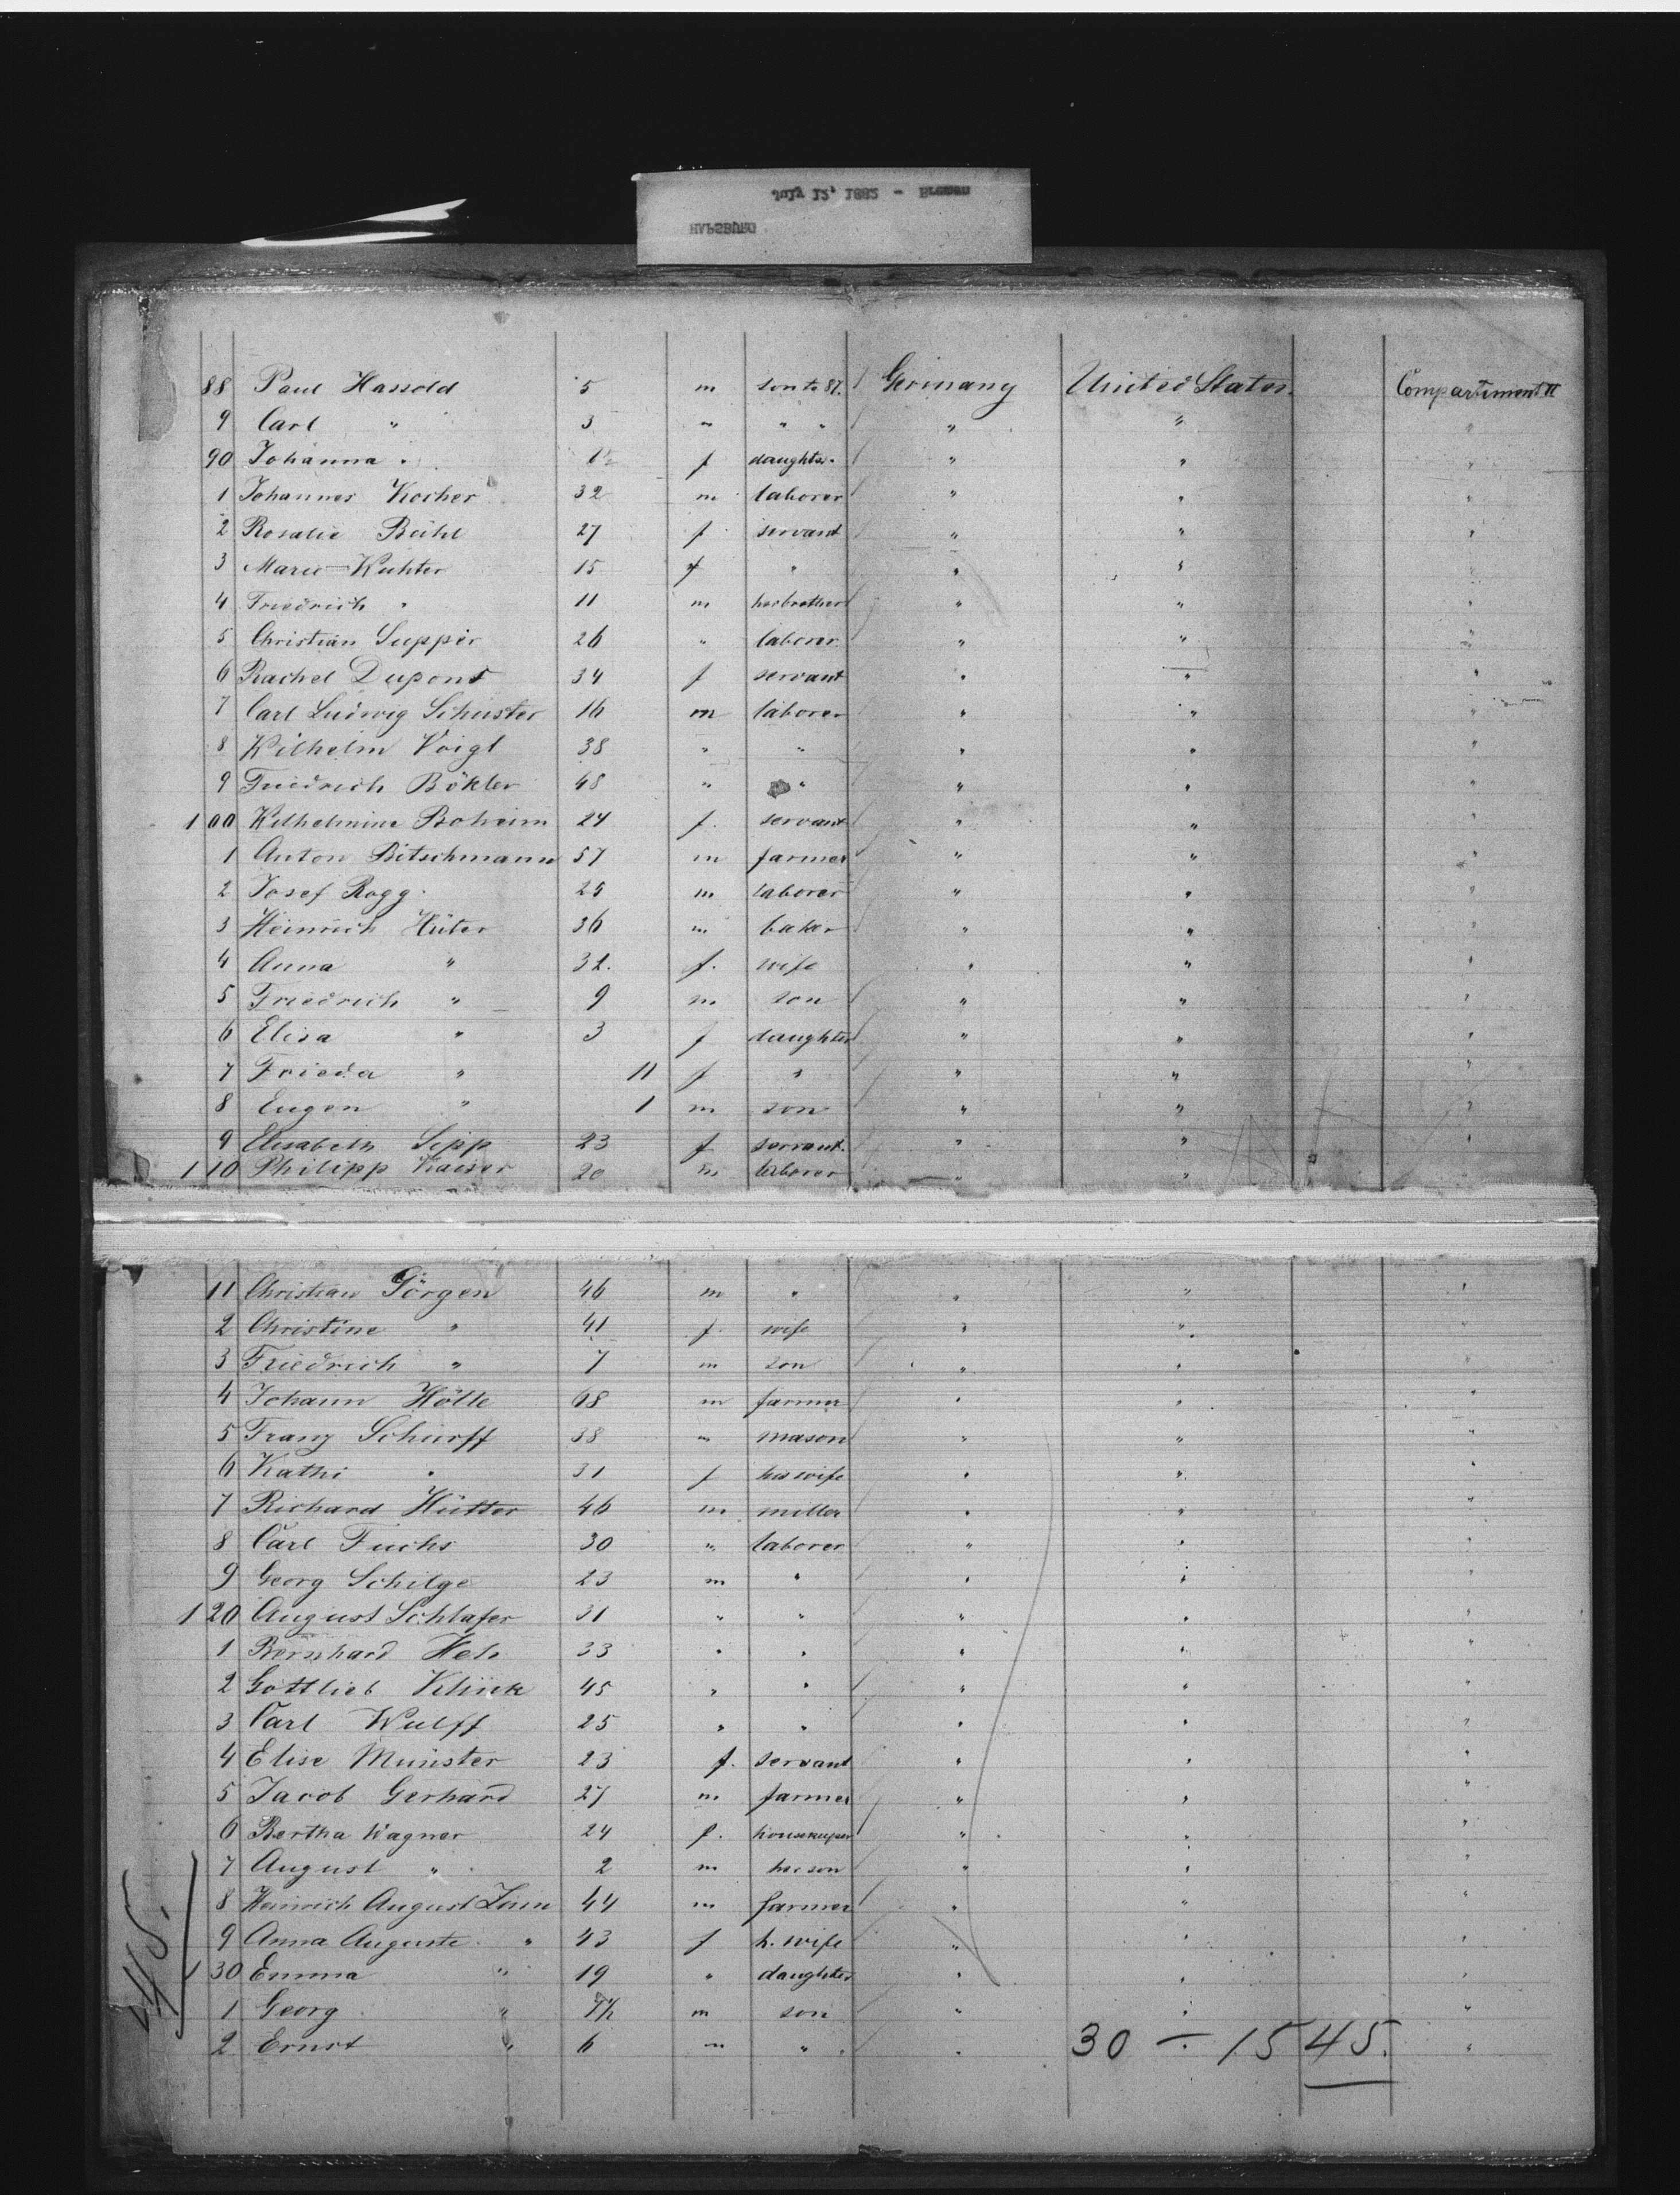 July 12, 1882 - Bremen
HAPSBURG
88 Paul Hassold 5 m son to 87. Germany United States. Compartiment II
9 Carl " 3 " " " " " "
90 Johanna " f daughter " " "
1 Johannes Kocher 32 m laborer " " "
2 Rosalie Beihl 27 f servant " " "
3 Marie Kuhter 15 f " " " "
4 Friedrich " 11 m her brother " " "
5 Christian Supper 26 " laborer " " "
6 Rachel Dupont 34 f servant " " "
7 Carl Ludwig Schuster 16 m laborer " " "
8 Wilhelm Voigt 38 " " " " "
9 Friedrich Bökler 48 " " " " "
100 Wilhelmine Boheim 24 f. servant " " "
1 Anton Bitschmann 57 m farmer " " "
2 Josef Rogg 25 m laborer " " "
3 Heinrich Hüter 36 m baker " " "
4 Anna " 32. f. wife " " "
5 Friedrich " 9 m son " " "
6 Elisa " 3 f daughter " " "
7 Frieda " 11 f " " " "
8 Eugen " 1 m son " " "
9 Elisabeth Sipp 23 f servant. " " "
110 Philipp Kaiser 20 m laborer " "
11 Christian Görgen 46 m " " " "
2 Christine " 41 f. wife " " "
3 Friedrich " 7 m son " " "
4 Johann Hölle 68 m farmer " " "
5 Franz Schürff 38 " mason " " "
6 Kathi " 31 f his wife " " "
7 Richard Hütter 46 m miller " " "
8 Carl Fuchs 30 " laborer " " "
9 Georg Schilge 23 m " " " "
120 August Schlafer 31 " " " " "
1 Bernhard Heh 33 " " " " "
2 Gottlieb Klück 45 " " " " "
3 Carl Wulff 25 " " " " "
4 Elise Münster 23 f. servant " " "
5 Jacob Gerhard 27 m farmer " " "
6 Bertha Wagner 24 f. housekeeper " " "
7 August " 2 m her son " " "
8 Heinrich August 44 m farmer " " "
9 Anna Auguste " 43 f h. wife " " "
130 Emma " 19 " daughter " " "
1 Georg " m son " " "
2 Ernst " 6 m " " "
30 - 15 45.
45.